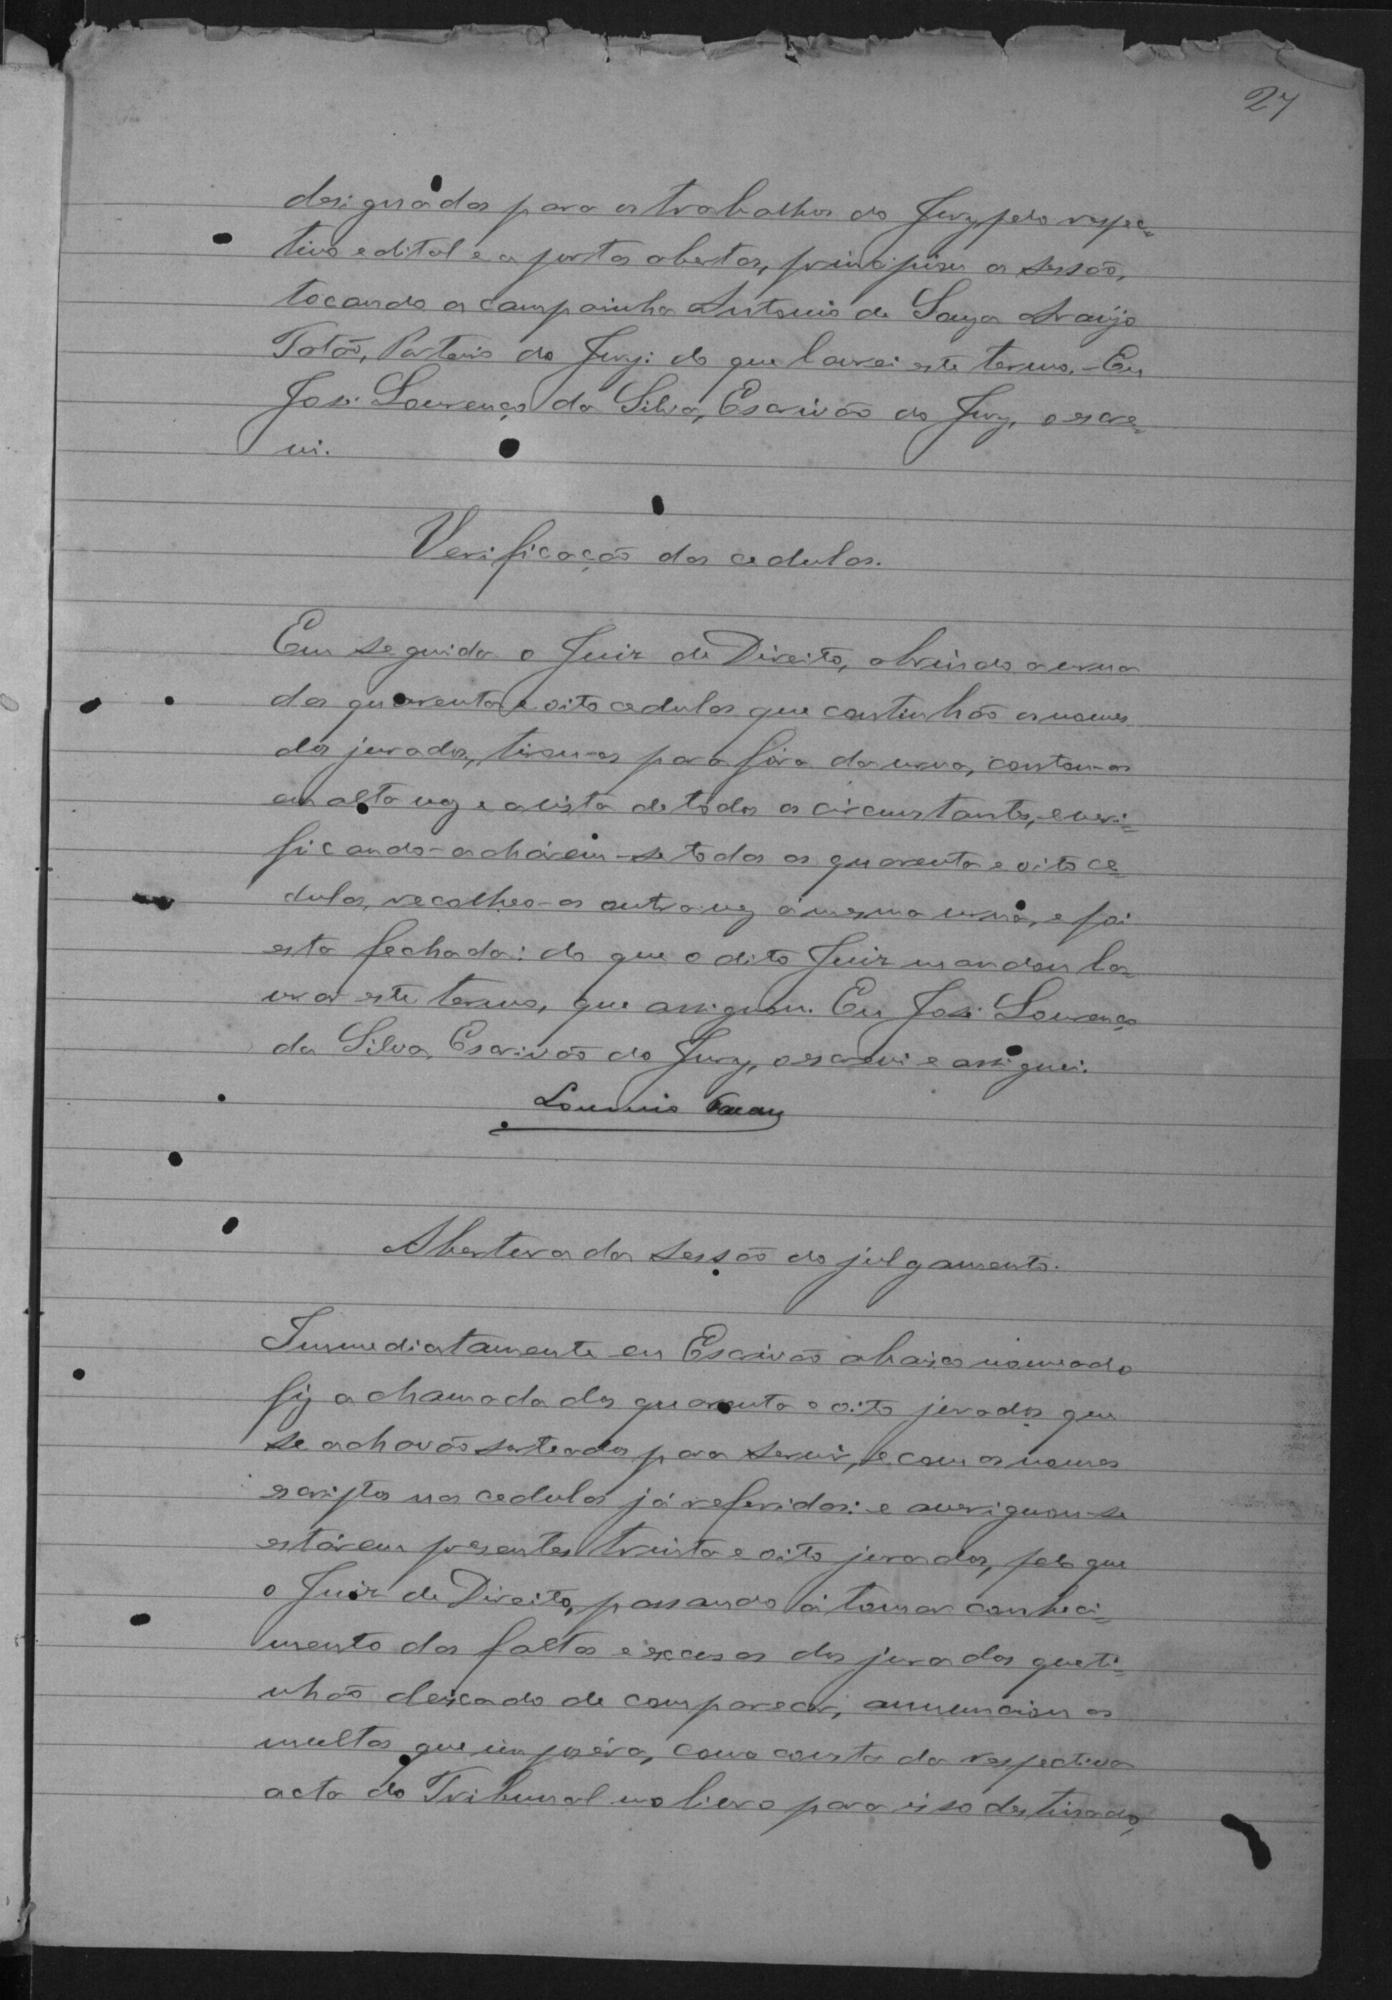 27
designados para os trabalhos do Jury, pelo respec-
tivo edital e a portas abertas, principiou a sessão,
tocando a campainha Antonio de Souza Araujo
Totão, Porteiro do Jury: do que lavrei este termo. Eu
José Lourenço da Silva, Escrivão do Jury, o escre-
vi.
Verificação das cedulas.
Em seguida o Juiz de Direito, abrindo a urna
das quarenta e oito cedulas que continhão os nomes
dos jurados, tirou-as para fóra da urna, contou-as
em alta voz e a vista de todos os circumstantes, e veri-
ficando acharem-se todas as quarenta e oito ce-
dulas, recolheo-as outra vez á mesma urna, e foi
esta fechada: do que o dito Juiz mandou la-
vrar este termo, que assignou. Eu José Lourenço
da Silva, Escrivão do Jury, o escrevi e assignei.
Abertura da sessão do julgamento.
Immediatamente eu Escrivão abaixo nomeado
fiz a chamada dos quarenta e oito jurados que
se achavão sorteados para servir, e com os nomes
escriptos nas cedulas já referidas: e averiguou-se
estárem presentes trinta e oito jurados, pelo que
o Juiz de Direito, passando á tomar conheci-
mento das faltas e excusas dos jurados que ti-
nhão deixado de comparecer, annunciou as
multas que imposéra, como consta da respectiva
acta do Tribunal no livro para isso destinado,